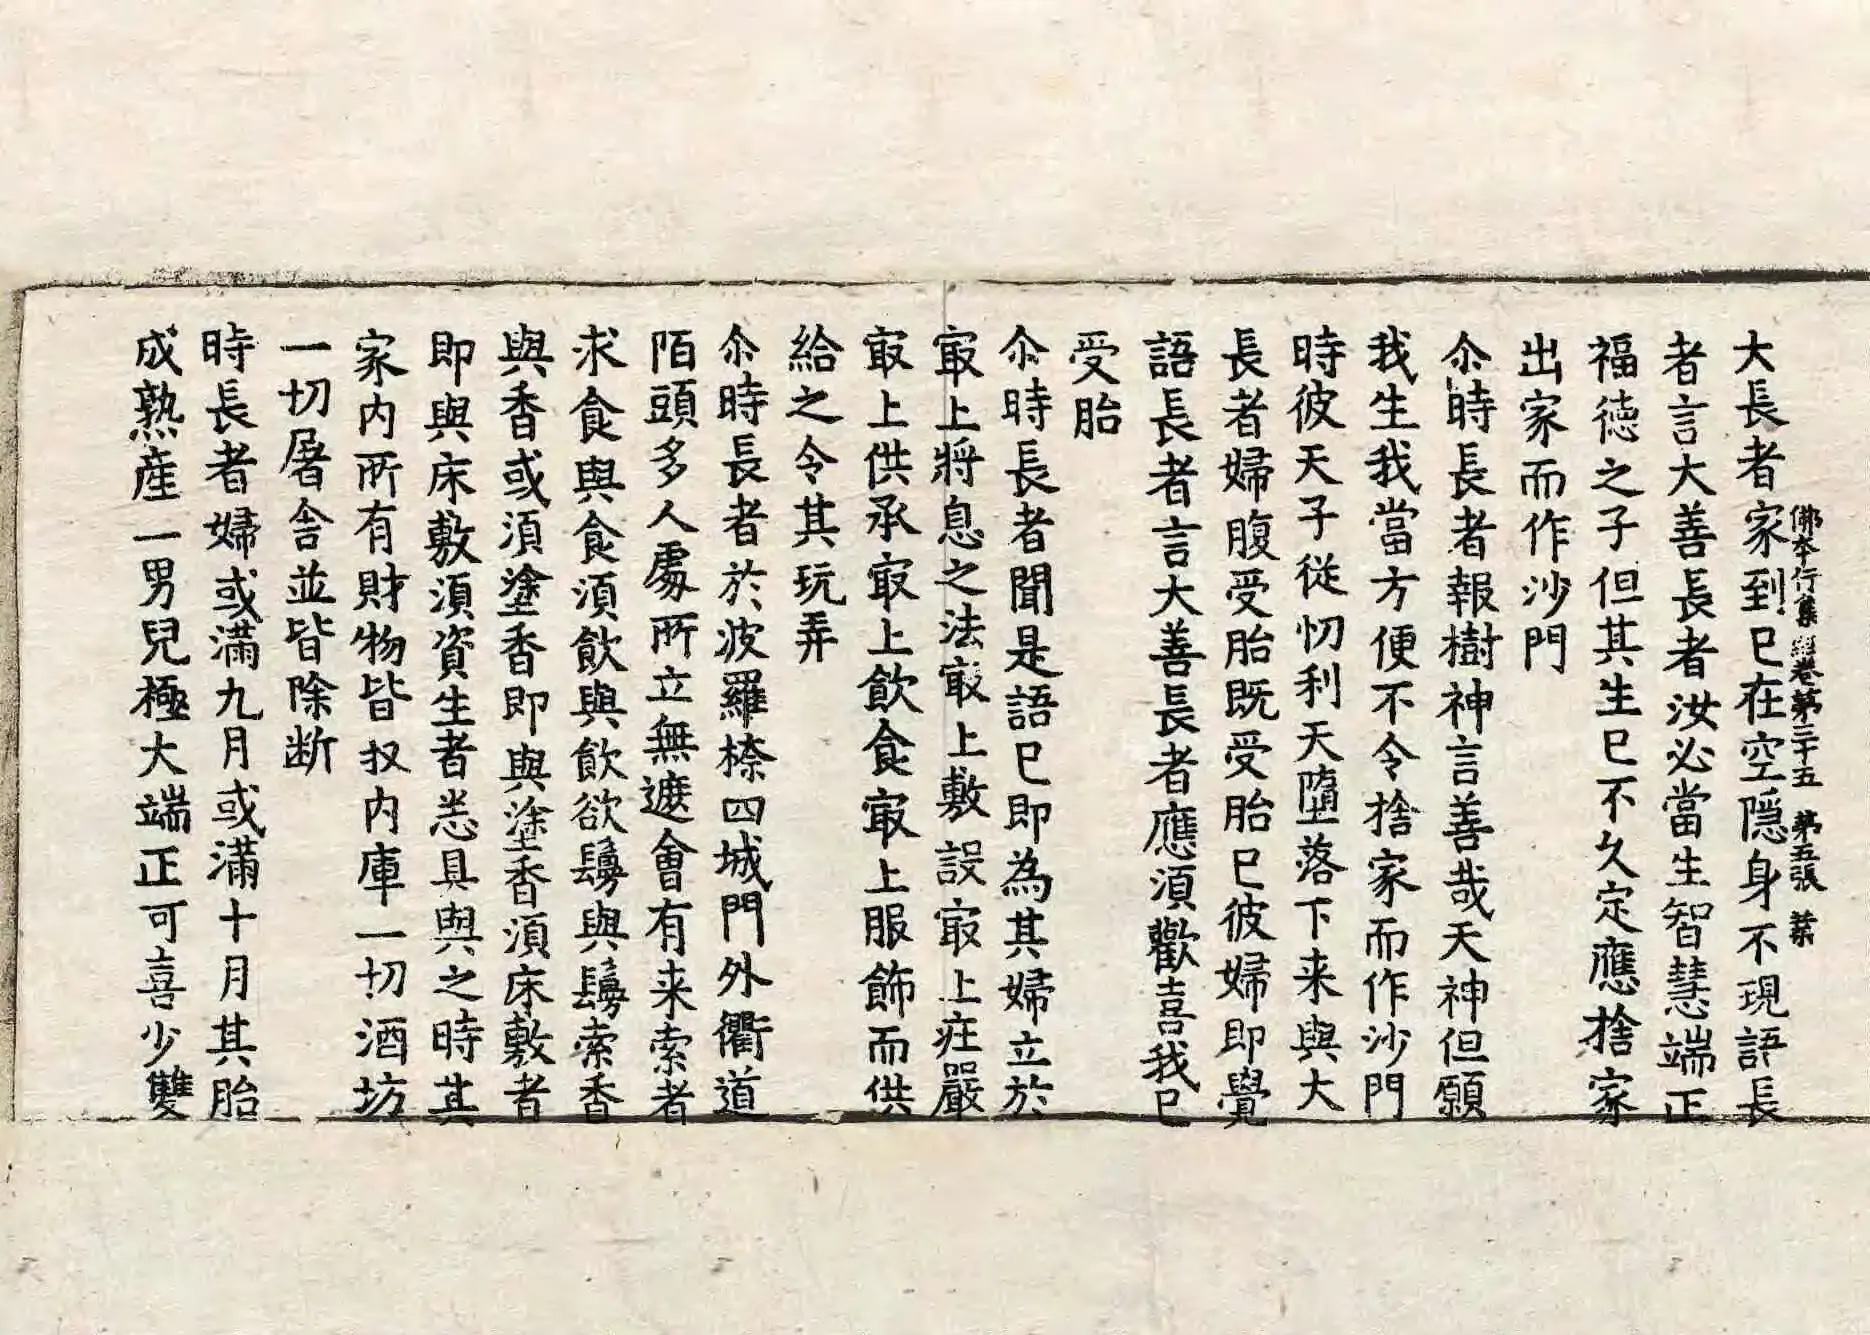 大長者家到已在空隱身不現語長
佛本行集經卷第三十五 第五張 葉
者言大善長者汝必當生智慧端正
福德之子但其生已不久定應捨家
出家而作沙門
尒時長者報樹神言善哉天神但願
我生我當方便不令捨家而作沙門
時彼天子從忉利天墮落下来與大
長者婦腹受胎既受胎已彼婦即覺
語長者言大善長者應須歡喜我已
受胎
尒時長者聞是語已即為其婦立於
㝡上將息之法㝡上敷設㝡上庄嚴
㝡上供承㝡上飲食㝡上服飾而供
給之令其玩弄
尒時長者於波羅㮈四城門外衢道
陌頭多人處所立無遮會有来索者
求食與食須飲與飲欲鬘與鬘索香
與香或須塗香即與塗香須床敷者
即與床敷須資生者悉具與之時其
家内所有財物皆収内庫一切酒坊
一切屠舎並皆除断
時長者婦或滿九月或滿十月其胎
成熟産一男兒極大端正可喜少雙